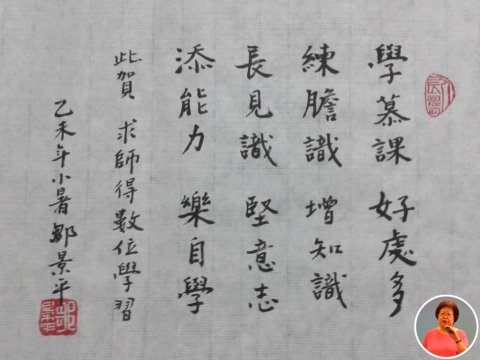 學慕課 好處多
練膽識 增知識
長見識 堅意志
添能力 樂自學
此賀 求師得數位學習
乙未年小暑鄒景平